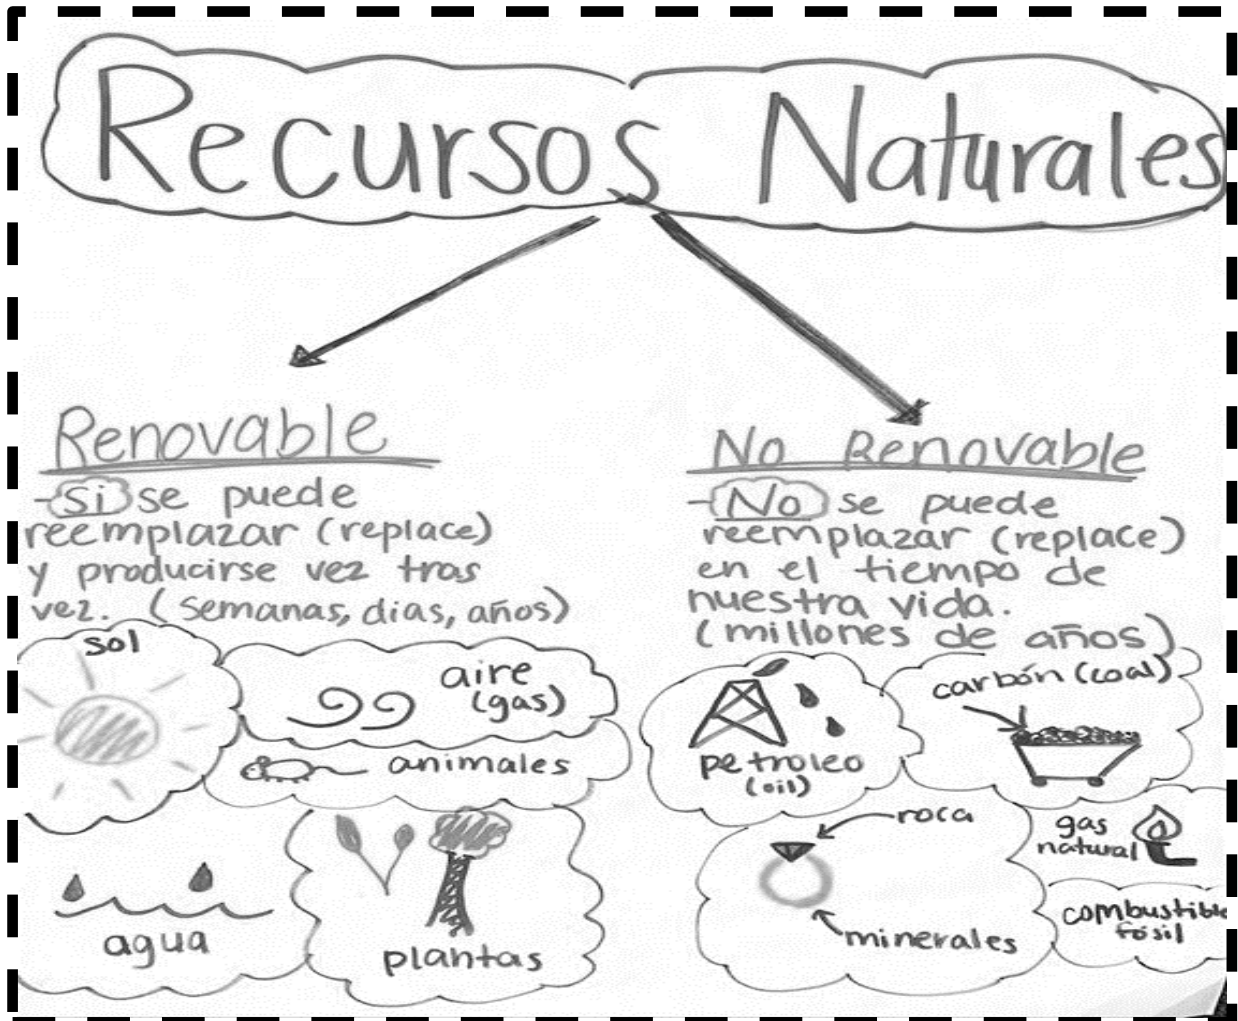 Recursos Naturales
Renovable
-Si se puede
reemplazar (replace)
y producirse vez tras
vez. (semanas, dias, años)
sol
aire
(gas)
animales
agua
plantas
No Renovable
-No se puede
reemplazar (replace)
en el tiempo de
nuestra vida.
(millones de años)
petroleo
(oil)
carbón (coal)
roca
minerales
gas
natural
combustible
fósil